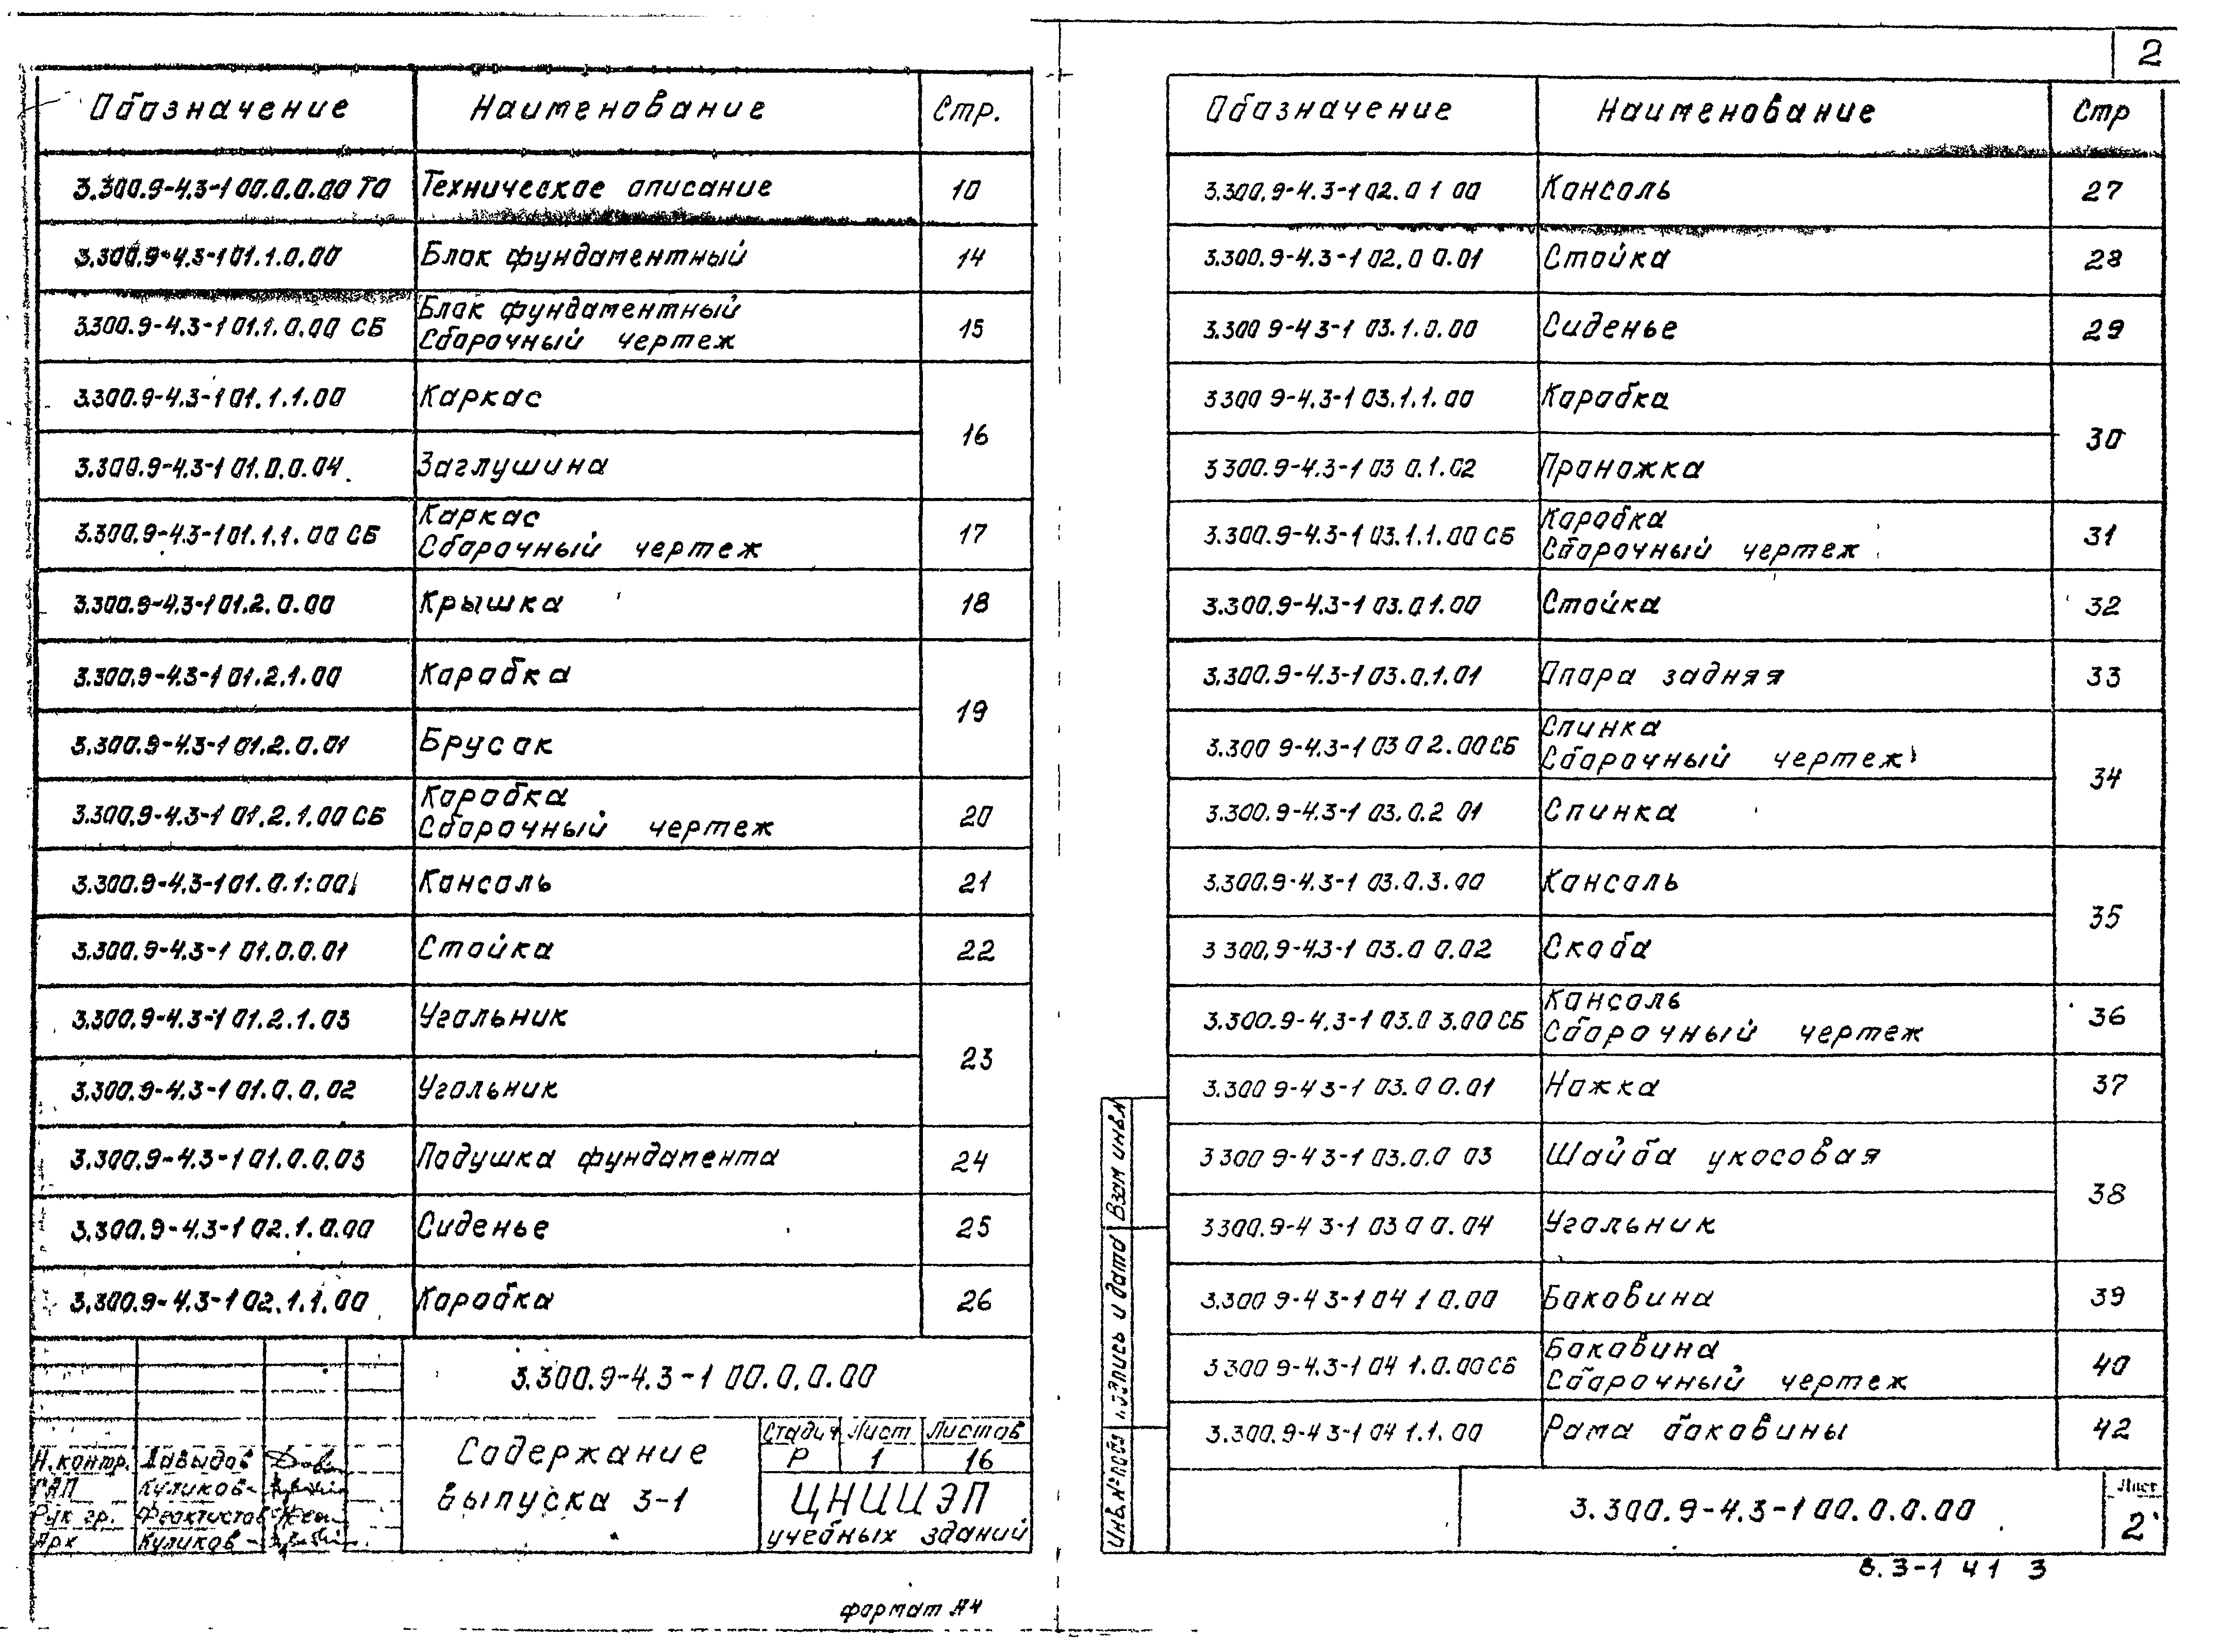 2
Обозначение Наименование Стр.
3.300.9-4.3-1 00.0.0.00 ТО Техническое описание 10
3.300.9-4.3-1 01.1.0.00 Блок фундаментный 14
3.300.9-4.3-1 01.1.0.00 СБ Блок фундаментный
Сборочный чертеж 15
3.300.9-4.3-1 01.1.1.00 Каркас
16
3.300.9-4.3-1 01.0.0.04 Заглушина
3.300.9-4.3-1 01.1.1.00 СБ Каркас
Сборочный чертеж 17
3.300.9-4.3-1 01.2.0.00 Крышка 18
3.300.9-4.3-1 01.2.1.00 Коробка
19
3.300.9-4.3-1 01.2.0.01 Брусок
3.300.9-4.3-1 01.2.1.00 СБ Коробка
Сборочный чертеж 20
3.300.9-4.3-1 01.0.1.00 Консоль 21
3.300.9-4.3-1 01.0.0.01 Стойка 22
3.300.9-4.3-1 01.2.1.03 Угольник
23
3.300.9-4.3-1 01.0.0.02 Угольник
3.300.9-4.3-1 01.0.0.03 Подушка фундамента 24
3.300.9-4.3-1 02.1.0.00 Сиденье 25
3.300.9-4.3-1 02.1.1.00 Коробка 26
3.300.9-4.3-1 00.0.0.00
Содержание
выпуска 3-1
Стадия Лист Листов
Р 1 16
ЦНИИЭП
учебных зданий
Н.контр. Давыдов
ГАП Куликов
Рук гр. Феоктистов
Арх Куликов
формат А4
Обозначение Наименование Стр
3.300.9-4.3-1 02.0 1 00 Консоль 27
3.300.9-4.3-1 02.0 0.01 Стойка 28
3.300 9-4 3-1 03.1.0.00 Сиденье 29
3 300 9-4.3-1 03.1.1.00 Коробка
30
3 300.9-4.3-1 03 0.1.02 Проножка
3.300.9-4.3-1 03.1.1.00 СБ Коробка
Сборочный чертеж 31
3.300.9-4.3-1 03.0 1.00 Стойка 32
3.300.9-4.3-1 03.0.1.01 Опора задняя 33
3.300 9-4.3-1 03 0 2.00 СБ Спинка
Сборочный чертеж
34
3.300.9-4.3-1 03.0.2 01 Спинка
3.300.9-4.3-1 03.0.3.00 Консоль
35
3 300.9-4.3-1 03.0 0.02 Скоба
3.300.9-4.3-1 03.0 3.00 СБ Консоль
Сборочный чертеж 36
3.300 9-4 3-1 03.0 0.01 Ножка 37
3 300 9-4 3-1 03.0.0 03 Шайба укосовая
38
3 300.9-4 3-1 03 0 0.04 Угольник
3.300 9-4 3-1 04 1 0.00 Боковина 39
3 300 9-4.3-1 04 1.0.00 СБ Боковина
Сборочный чертеж 40
3.300.9-4.3-1 04 1.1.00 Рама боковины 42
3.300.9-4.3-1 00.0.0.00
Лист
2
Инв.№ подл
Подпись и дата
Взам инв.№
8.3-1 41 3